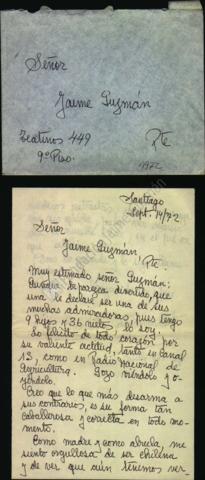 Señor
Jaime Guzmán
Teatinos 449
9º Piso.
Pte
1972
Santiago
Sept. 14/72
Señor
Jaime Guzmán,
Pte.
Muy estimado señor Guzmán:
Aunque le parezca divertido, que
una le declare ser una de sus
muchas admiradoras, pues tengo
9 hijos y 36 nietos, lo soy!
Lo felicito de todo corazón por
su valiente actitud, tanto en Canal
13, como en Radio Nacional de
Agricultura. Gozo viéndolo y o-
yéndolo.
Creo que lo que más desarma a
sus contrarios, es su forma tan
caballerosa y correcta en todo mo-
mento.
Como madre y como abuela, me
siento orgullosa de ser chilena
y de ver que aún tenemos ver-